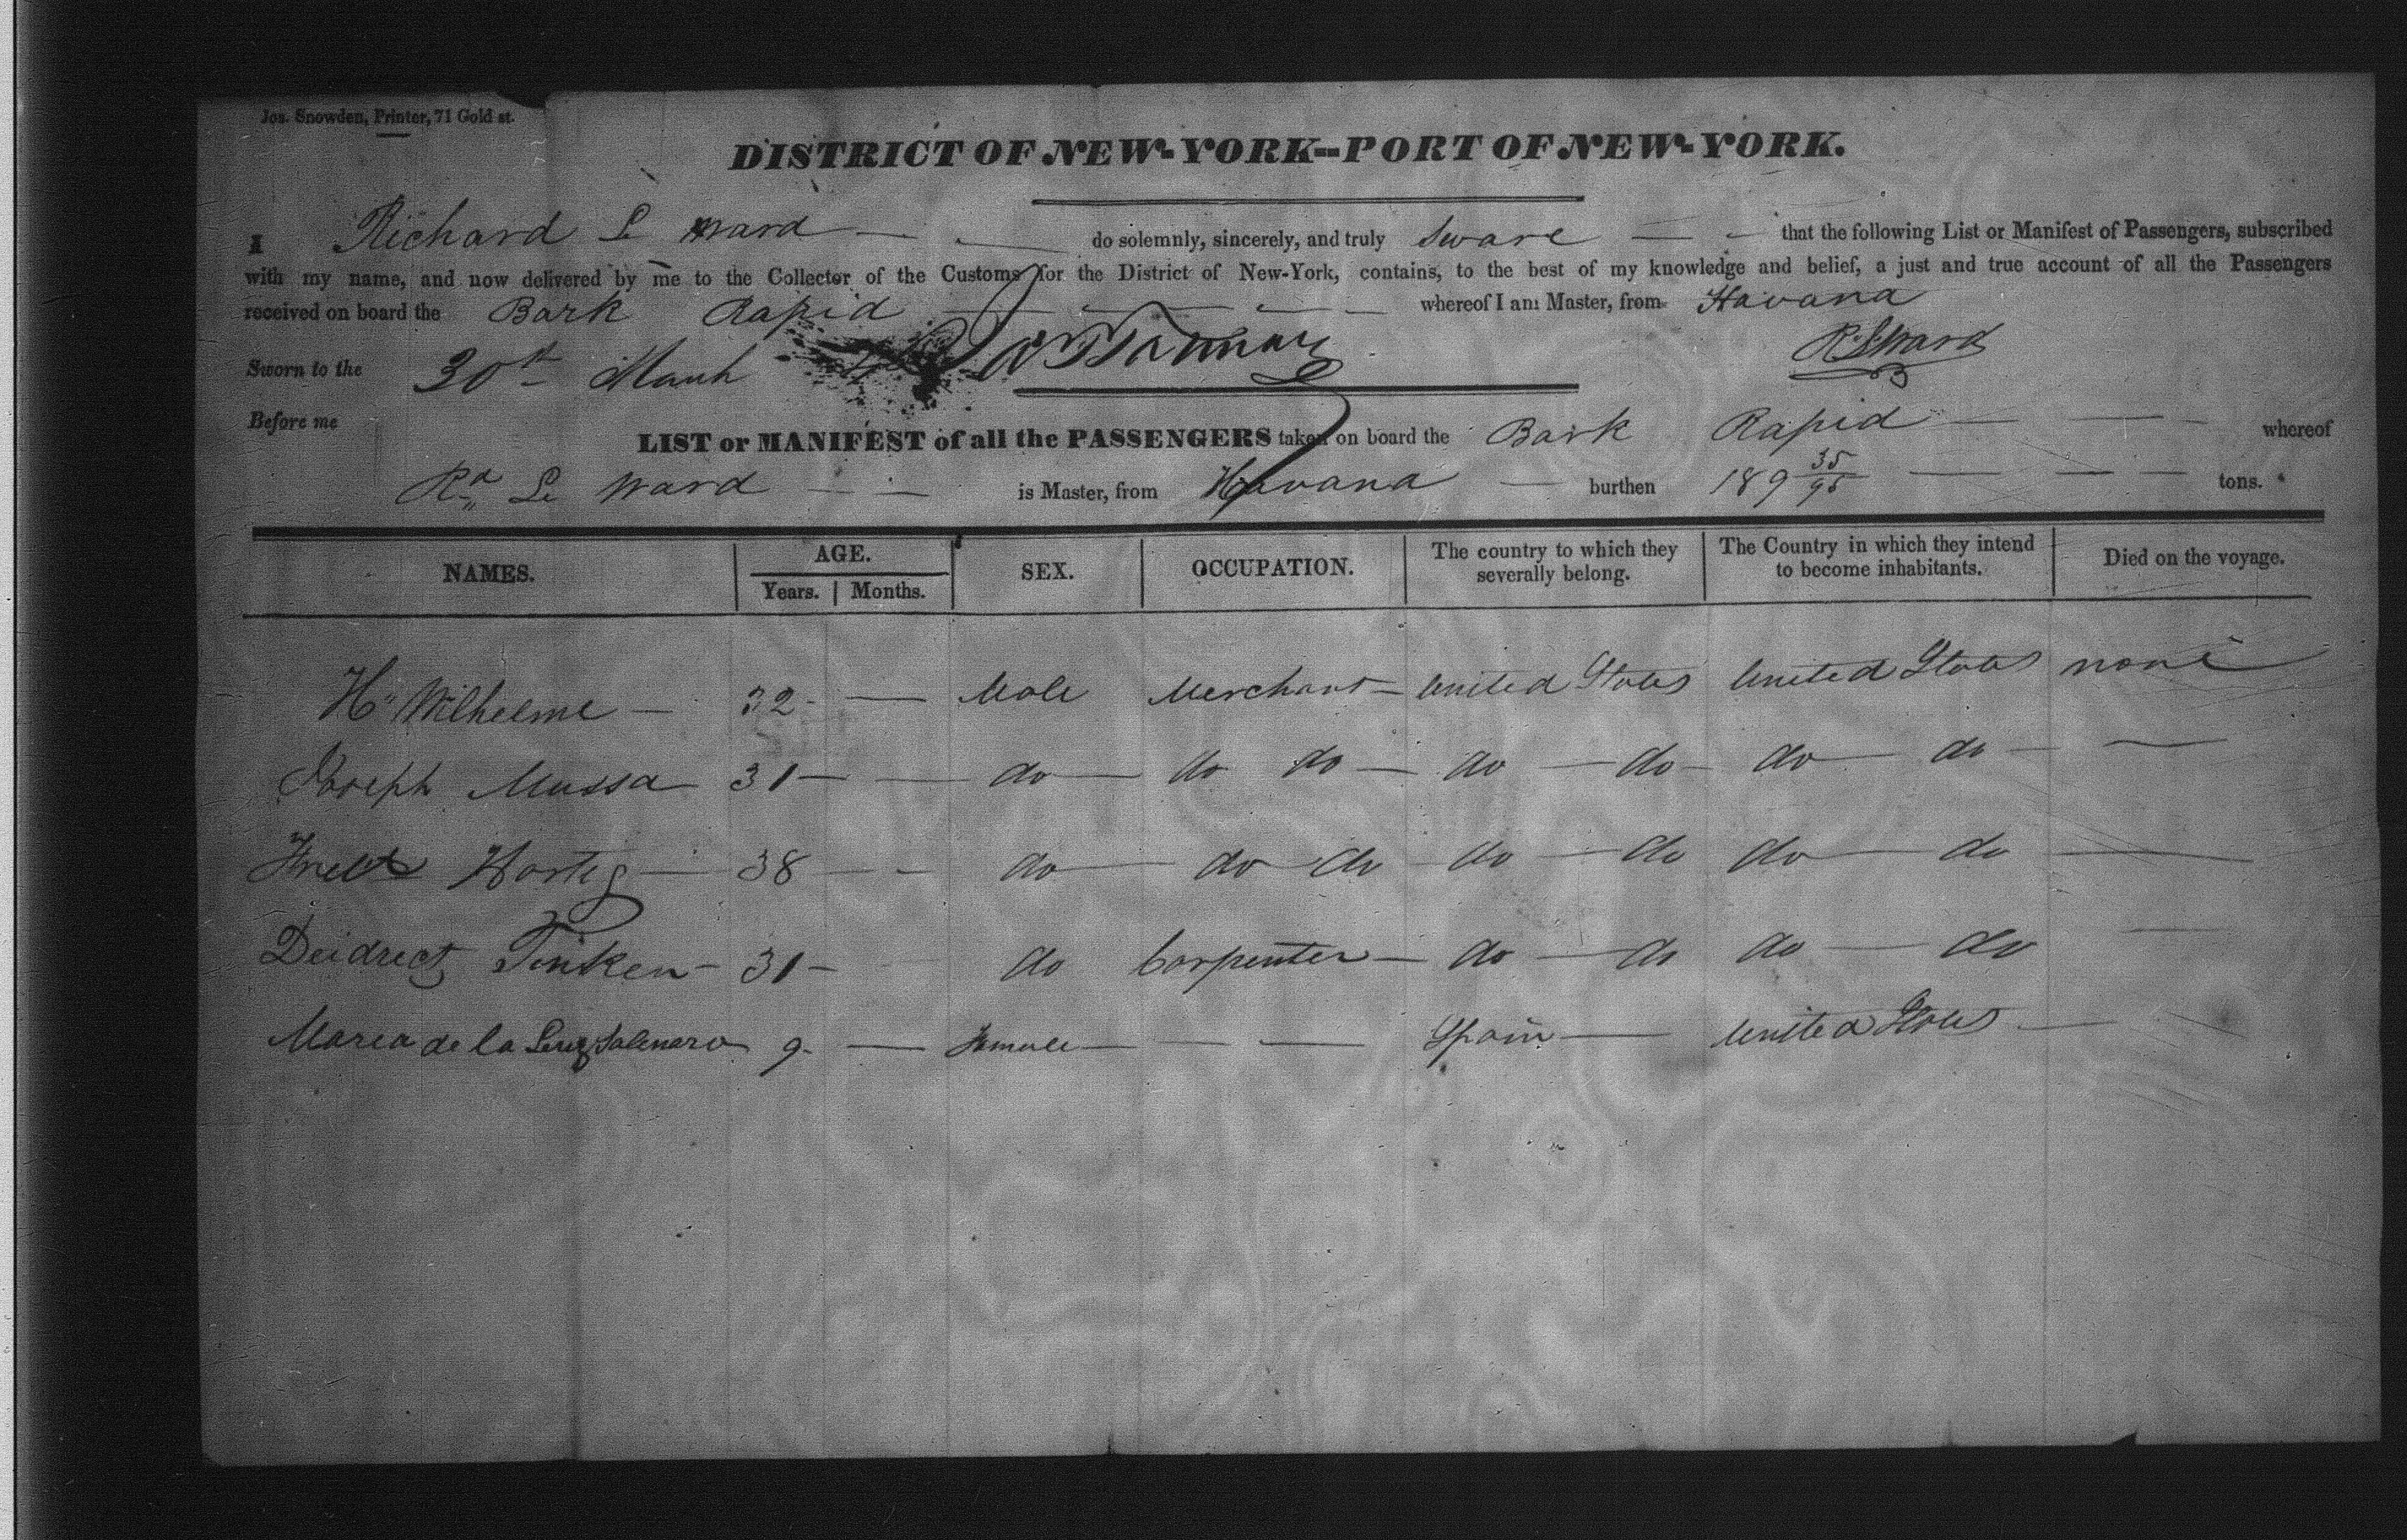 Jos. Snowden, Printer, 71 Gold st.
DISTRICT OF NEW-YORK--PORT OF NEW-YORK.
I Richard L Ward do solemnly, sincerely, and truly Sware that the following List or Manifest of Passengers, subscribed
with my name, and now delivered by me to the Collector of the Customs for the District of New-York, contains, to the best of my knowledge and belief, a just and true account of all the Passengers
received on board the Bark Rapid whereof I am Master, from Havana
Sworn to the 30th March R. L Ward
Before me
LIST or MANIFEST of all the PASSENGERS taken on board the Bark Rapid whereof
Rd L Ward is Master, from Havana burthen 189 35/95 tons.
NAMES. AGE. Years. Months. SEX. OCCUPATION. The country to which they severally belong. The Country in which they intend to become inhabitants. Died on the voyage.
H Wilhelme 32 Male Merchant United States United States none
Joseph Mussa 31 do do do do do do do
Hartig 38 do do do do do do do
Deidrect Tinken 31 do Carpenter do do do do
Maria de la 9 Female Spain United States